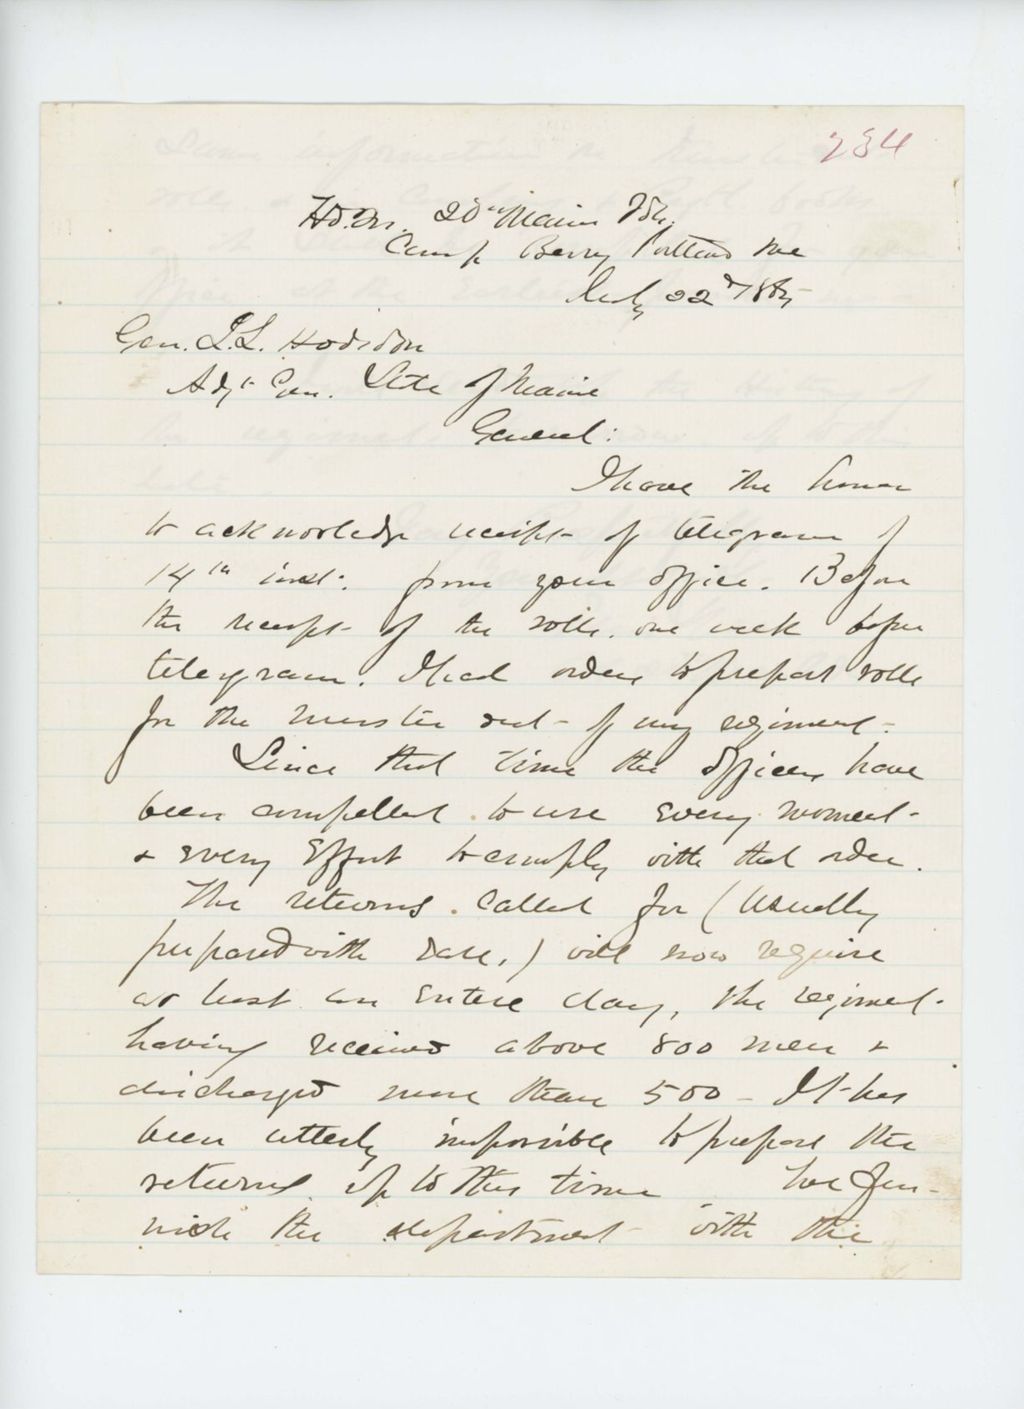 234
Hd. Qrs. 20th Maine Vols.
Camp Berry Portland Me
July 22d 1865
Gen. J. L. Hodsdon
Adjt Gen. State of Maine
General:
I have the honor
to acknowledge receipt of telegram of
14th inst: from your office. Before
the receipt of the rolls. one week before
telegram. I had orders to prepare rolls
for the muster out of my regiment.
Since that time the officers have
been compelled to use every moment
& every effort to comply with that order.
The returns called for (usually
prepared with ease,) will now require
at least an entire day, the regiment
having received above 800 men &
discharged more than 500 - It has
been utterly impossible to prepare the
returns up to this time We fur-
nish the department with the